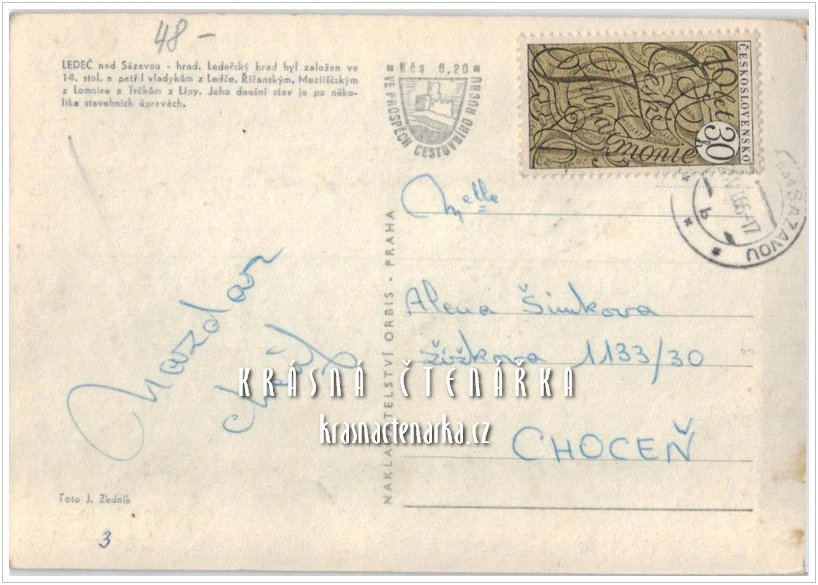 48-
LEDEČ nad Sázavou - hrad. Ledečský hrad byl založen ve
14. stol. a patřil vladykům z Ledče, Říčanským, Mezlíříčským
z Lomnice a Trčkům z Lípy. Jeho dnešní stav je po něko-
lika stavebních úpravách.
Kčs 0,20
VE PROSPĚCH CESTOVNÍHO RUCHU
70 let
České
Filharmonie
30 h
ČESKOSLOVENSKO
SÁZAVOU
b
Melle
Alena Šimkova
Žižkova 1133/30
CHOCEŇ
Nazdar
NAKLADATELSTVÍ ORBIS - PRAHA
KRÁSNÁ ČTENÁŘKA
krasnactenarka.cz
Foto J. Zedník
3